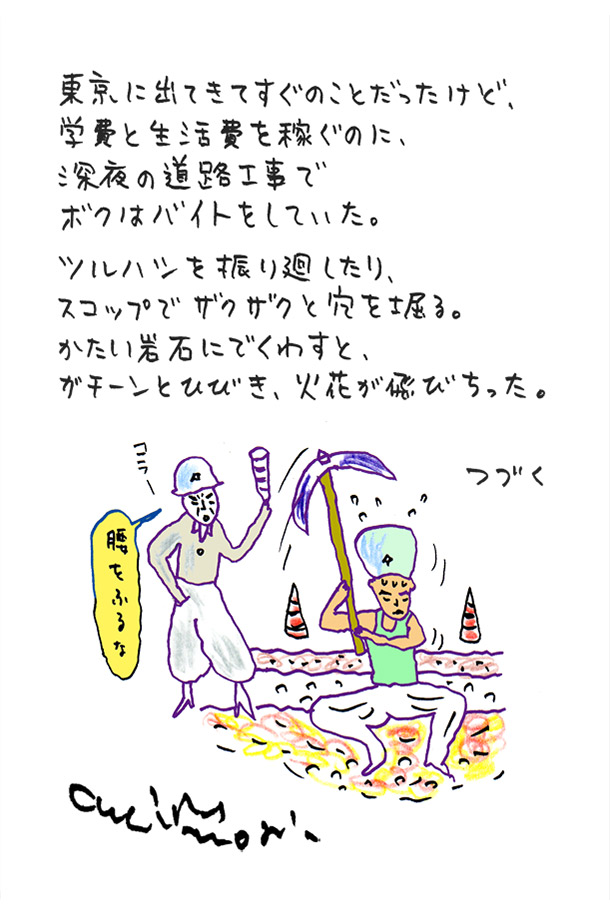 東京に出てきてすぐのことだったけど、
学費と生活費を稼ぐのに、
深夜の道路工事で
ボクはバイトをしていた。
ツルハシを振り廻したり、
スコップでザクザクと穴を堀る。
かたい岩石にでくわすと、
ガチーンとひびき、火花が飛びちった。
つづく
コラー
腰をふるな